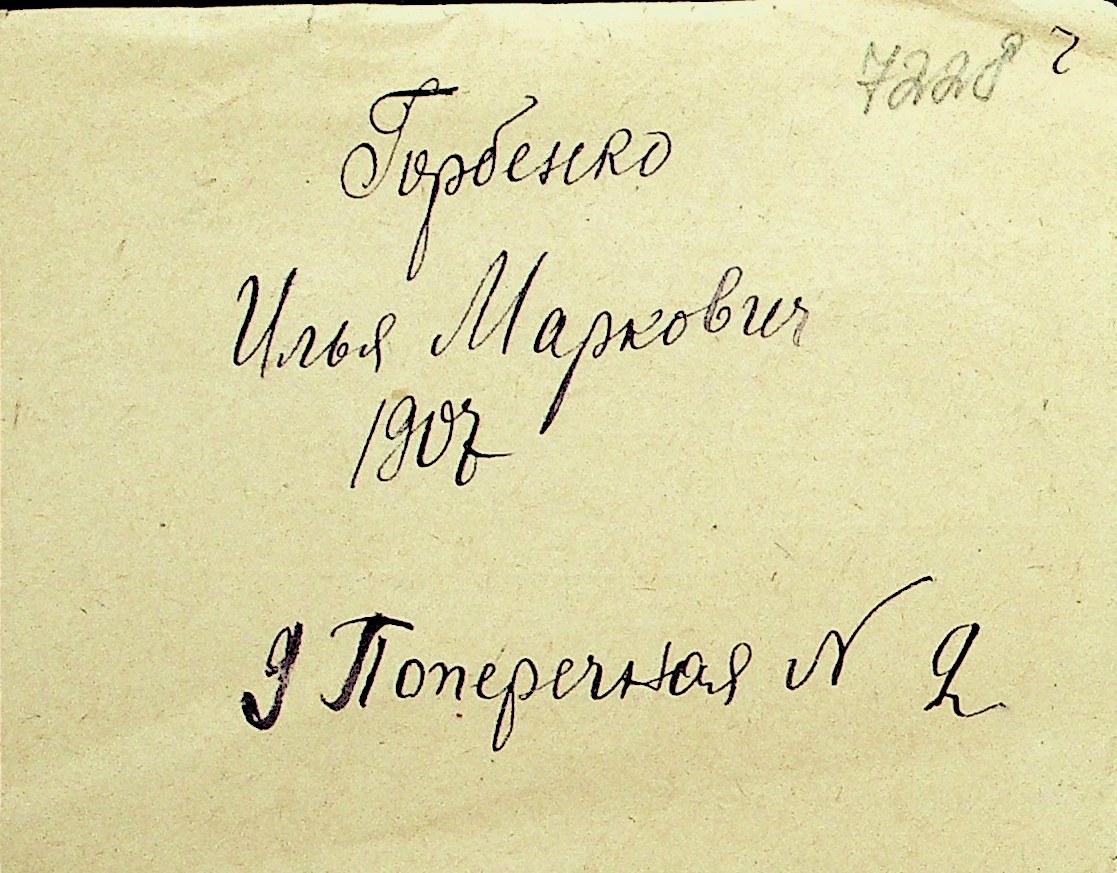 7228
Горбенко
Илья Маркович
1907
9 Поперечная N 2